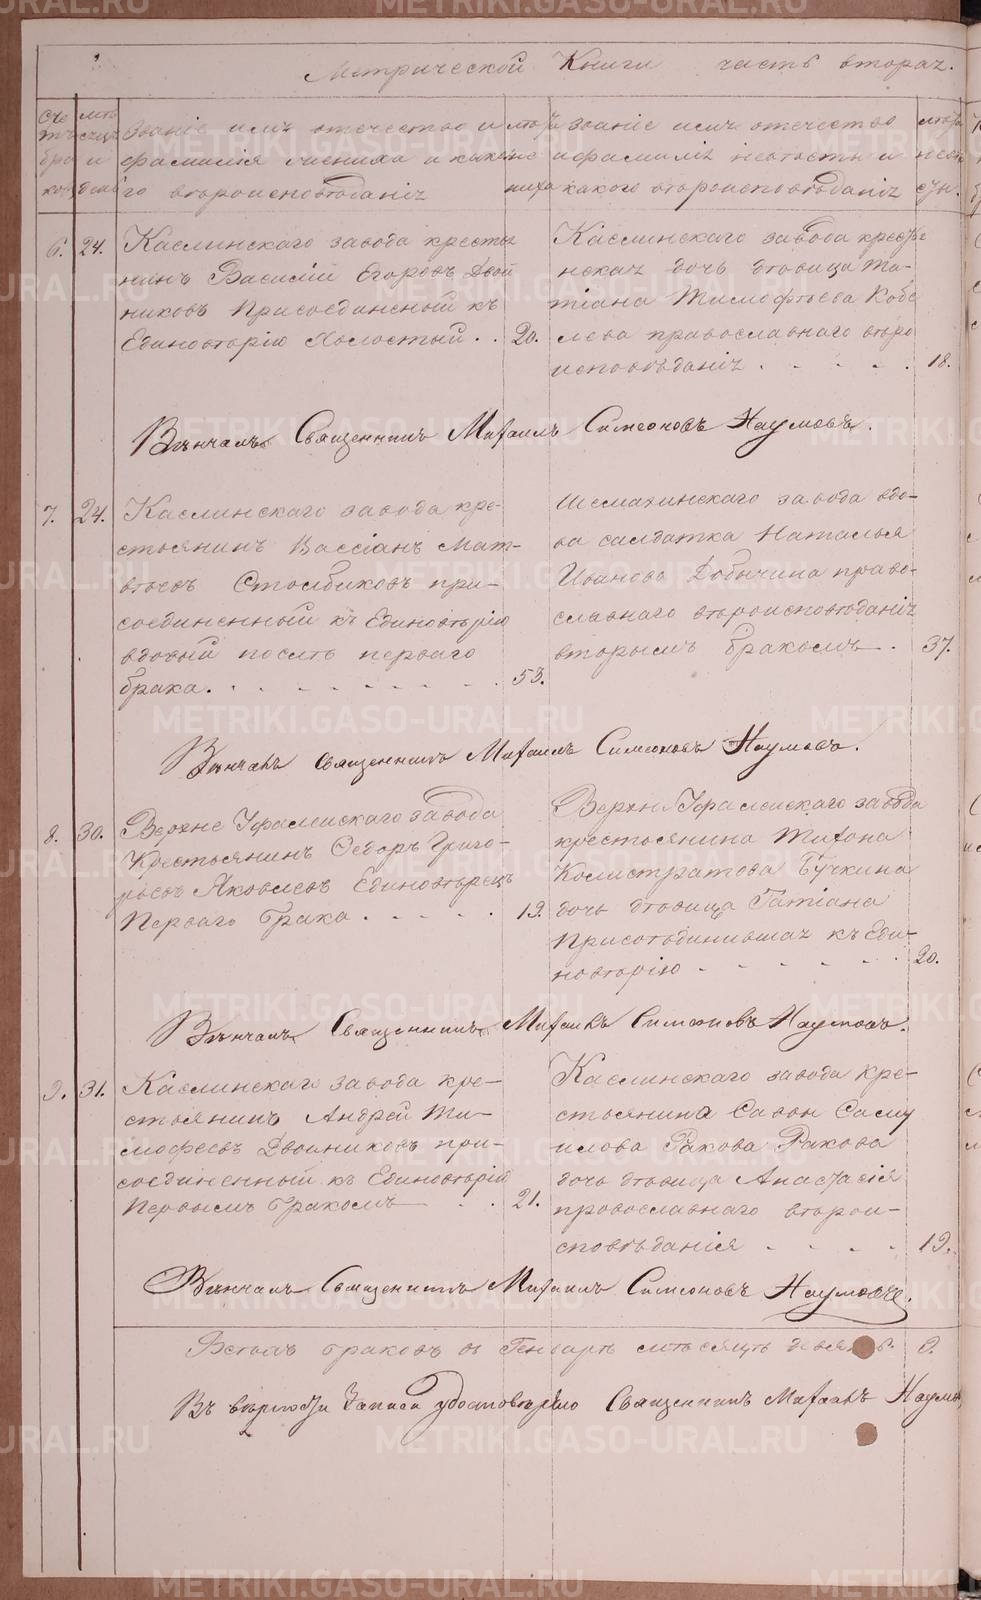 Метрической Книги часть вторая.
Счетъ браковъ
мѣсяцъ и день
Званіе имя отечество и
фамилія жениха и какого
вѣроисповѣданія
лѣта жениха
Званіе имя отечество
и фамилія невѣсты и
какого вѣроисповѣданія
лѣта невѣсты.
6. 24. Каслинскаго завода крестья
нинъ Василій Егоровъ Двой
никовъ Присоединеный къ
Единовѣрію Холостый . . 20.
Каслинскаго завода кресть
нская дочь дѣвица Та-
тіана Тимофѣева Кобе
лева православнаго вѣро
исповѣданія . . . . . 18.
Вѣнчалъ Священникъ Михаилъ Симеоновъ Наумовъ.
7. 24. Каслинскаго завода кре-
стьянинъ Вассіанъ Мат-
вѣевъ Столбиковъ при-
соединенный къ Единовѣрію
вдовый послѣ перваго
брака. . . . . . . . . 53.
Шемахинскаго завода вдо-
ва салдатка Наталья
Иванова Добычина право-
славнаго вѣроисповѣданія
вторымъ бракомъ . 37.
Вѣнчалъ священникъ Михаилъ Симеоновъ Наумовъ.
8. 30. Верхне Уфалейскаго завода
Крестьянинъ Федоръ Григо-
рьевъ Яковлевъ Единовѣрецъ
Перваго брака . . . . . 19.
Верхн Уфалейскаго завода
крестьянина Тихона
Калистратова Бучкина
дочь дѣвица Татіана
Присоѣдинившая къ Еди-
новѣрію - - - - - - 20.
Вѣнчалъ Священникъ Михаилъ Симеоновъ Наумовъ.
9. 31. Каслинскаго завода кре-
стьянинъ Андрей Ти-
мофеевъ Двойниковъ при-
соединенный къ Единовѣрію
Первымъ бракомъ . . 21.
Каслинскаго завода кре-
стьянина Савон Саму
илова Ракова Ракова
дочь дѣвица Анастасія
провославнаго вѣрои-
сповѣданія . . . . 19.
Вѣнчалъ Священникъ Михаилъ Симеоновъ Наумовъ.
Всѣхъ браковъ въ Генварѣ мѣсяцѣ 9.
Въ вѣрности записи удостовѣряю Священникъ Михаилъ Наумо
METRIKI.GASO-URAL.RU